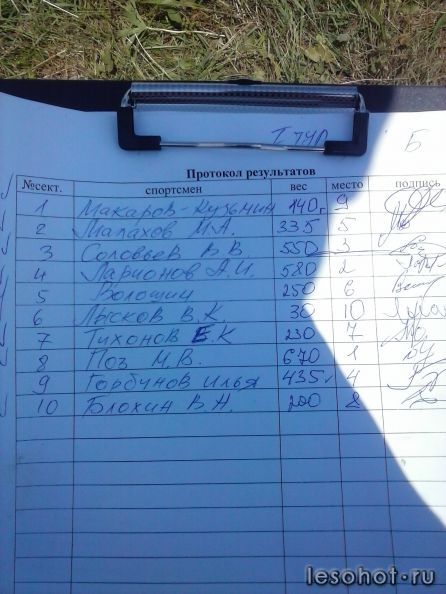 I тур Б
Протокол результатов
№сект. спортсмен вес место подпись
1 Макаров-Кузьмин 140г 9
2 Малахов М.А. 335 5
3 Соловьев В.В. 550 3
4 Ларионов А.И. 580 2
5 Волошин 250 6
6 Лысков В.К. 30 10
7 Тихонов Е.К 230 7
8 Поз М.В. 670 1
9 Горбунов Илья 435г 4
10 Блохин В.Н. 200 8
lesohot.ru